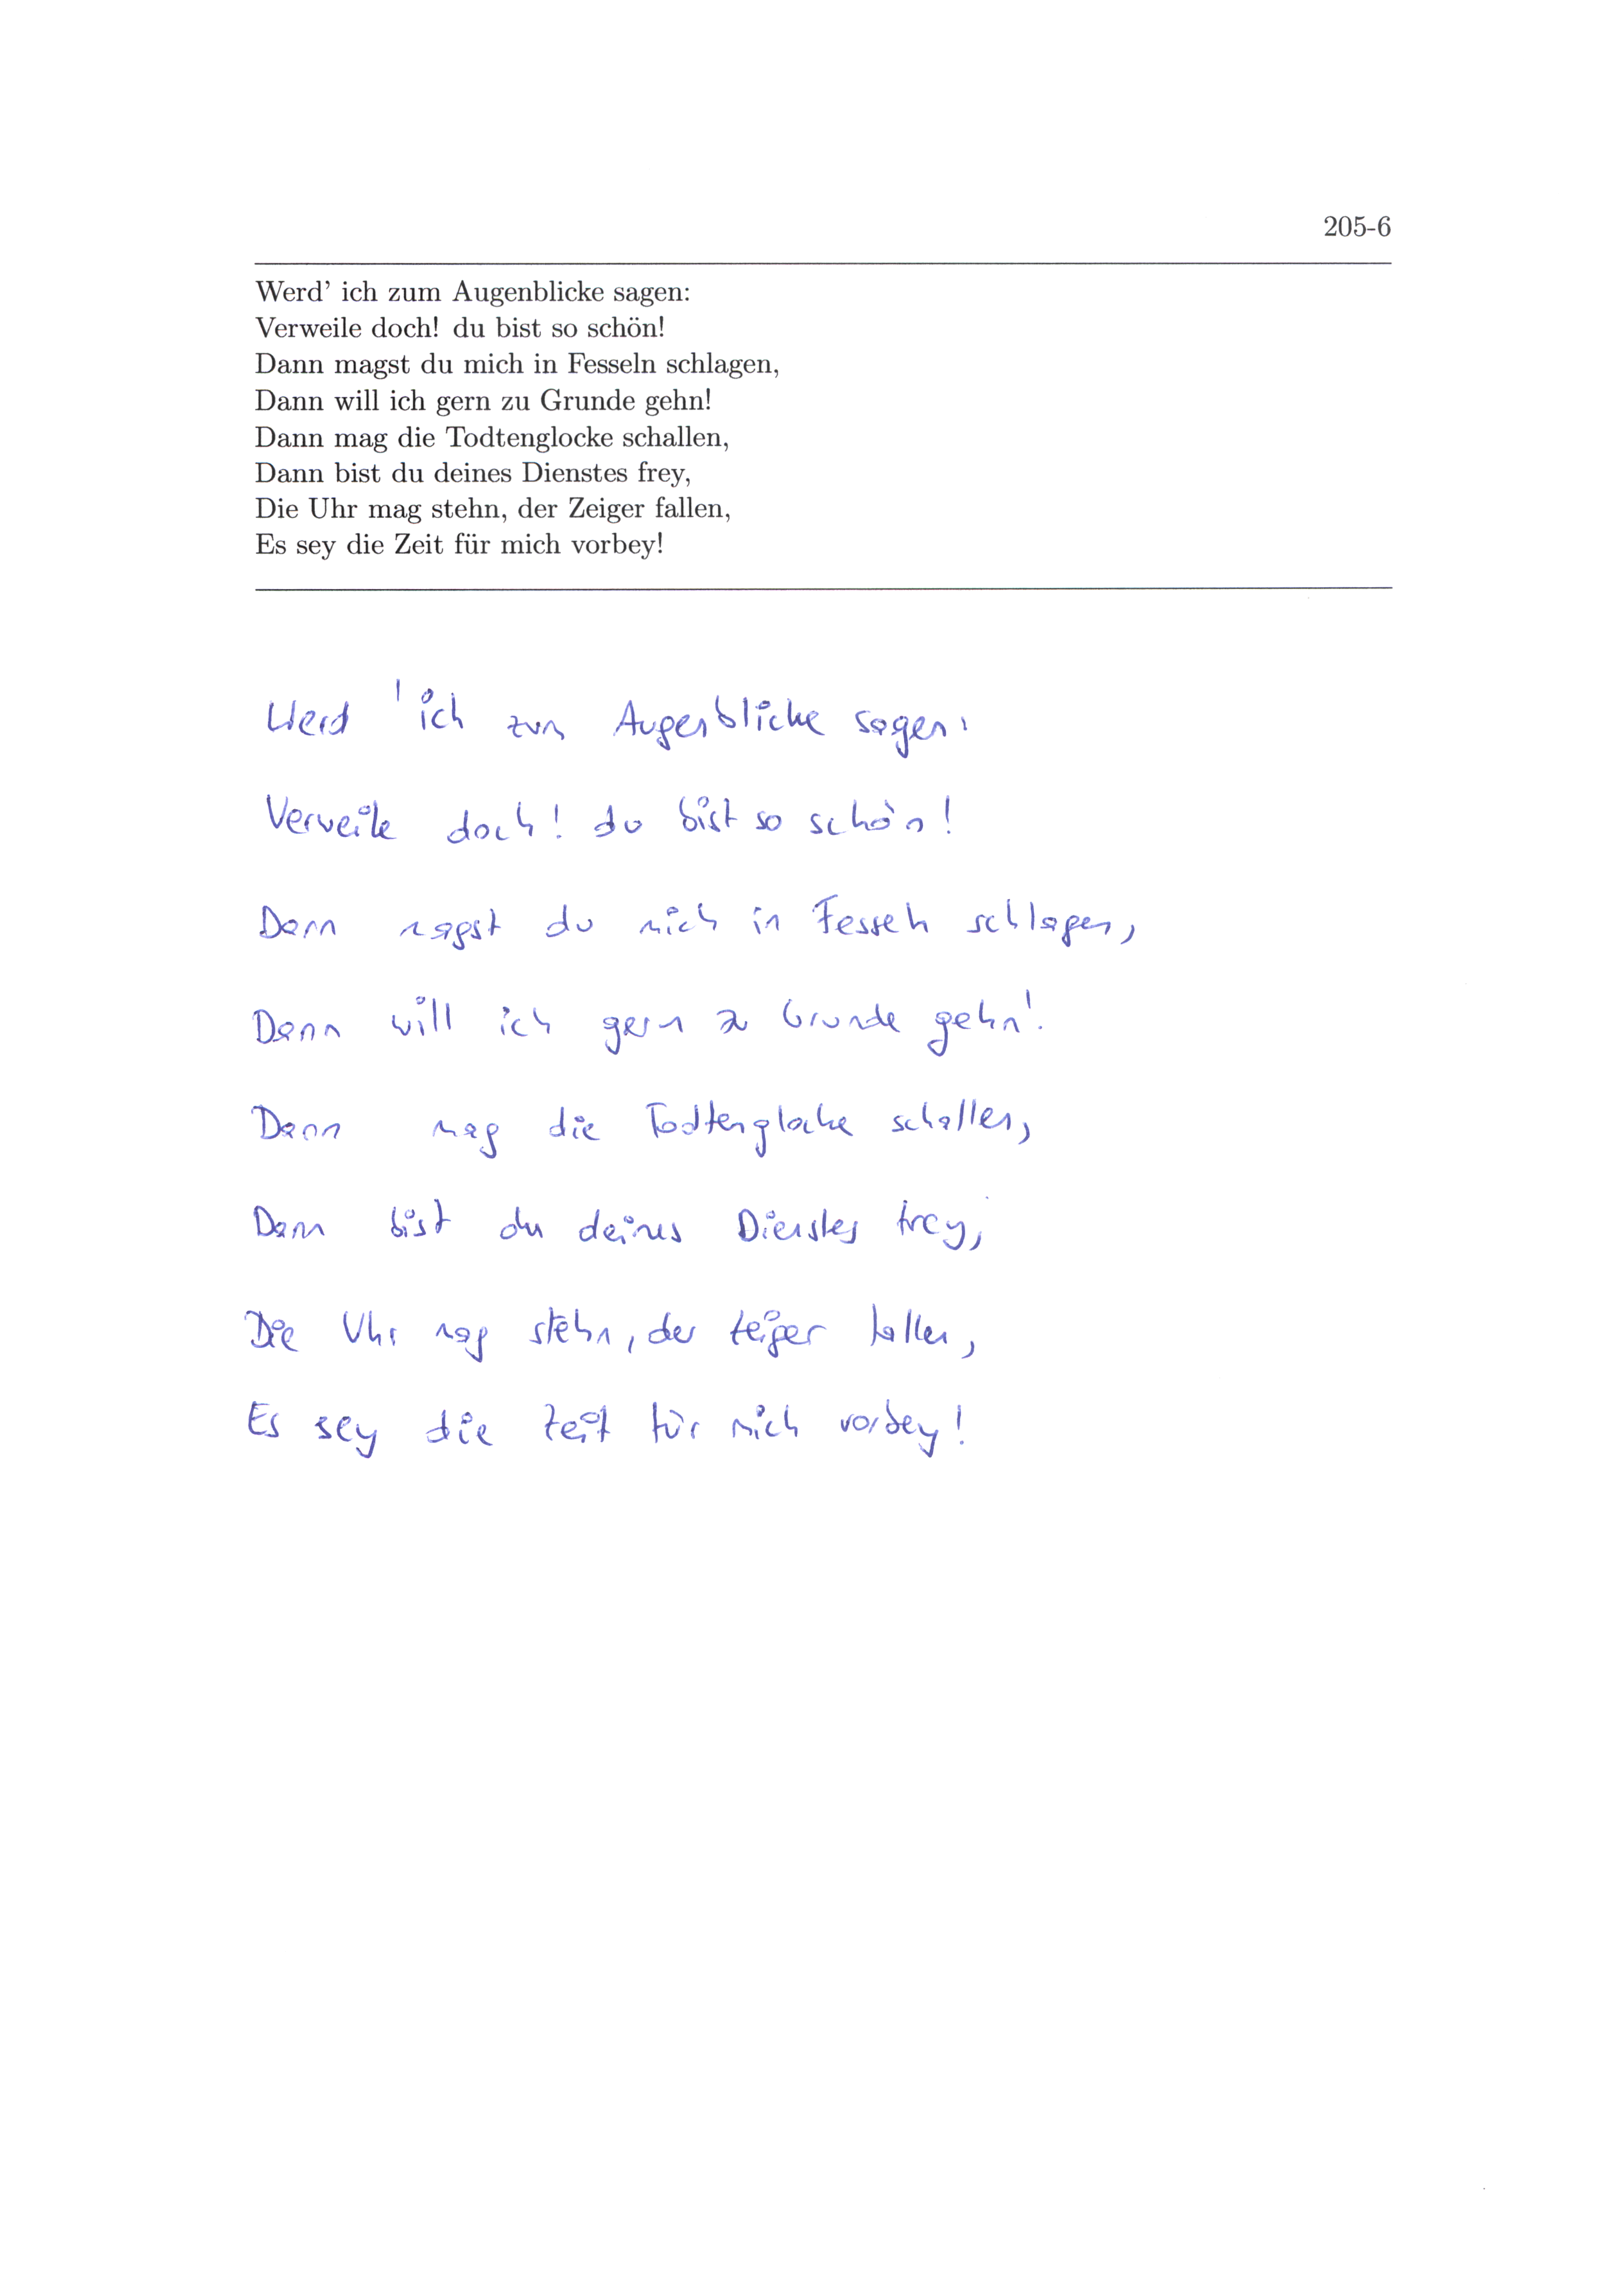 205-6
Werd' ich zum Augenblicke sagen:
Verweile doch! du bist so schön!
Dann magst du mich in Fesseln schlagen,
Dann will ich gern zu Grunde gehn!
Dann mag die Todtenglocke schallen,
Dann bist du deines Dienstes frey,
Die Uhr mag stehn, der Zeiger fallen,
Es sey die Zeit für mich vorbey!
Werd 'ich zum Augenblicke sagen:
Verweile doch! du bist so schön!
Dann magst du mich in Fesseln schlagen,
Dann will ich gern zu Grunde gehn!
Dann mag die Todtenglocke schallen,
Dann bist du deines Dienstes frey,
Die Uhr mag stehn, der Zeiger fallen,
Es sey die Zeit für mich vorbey!